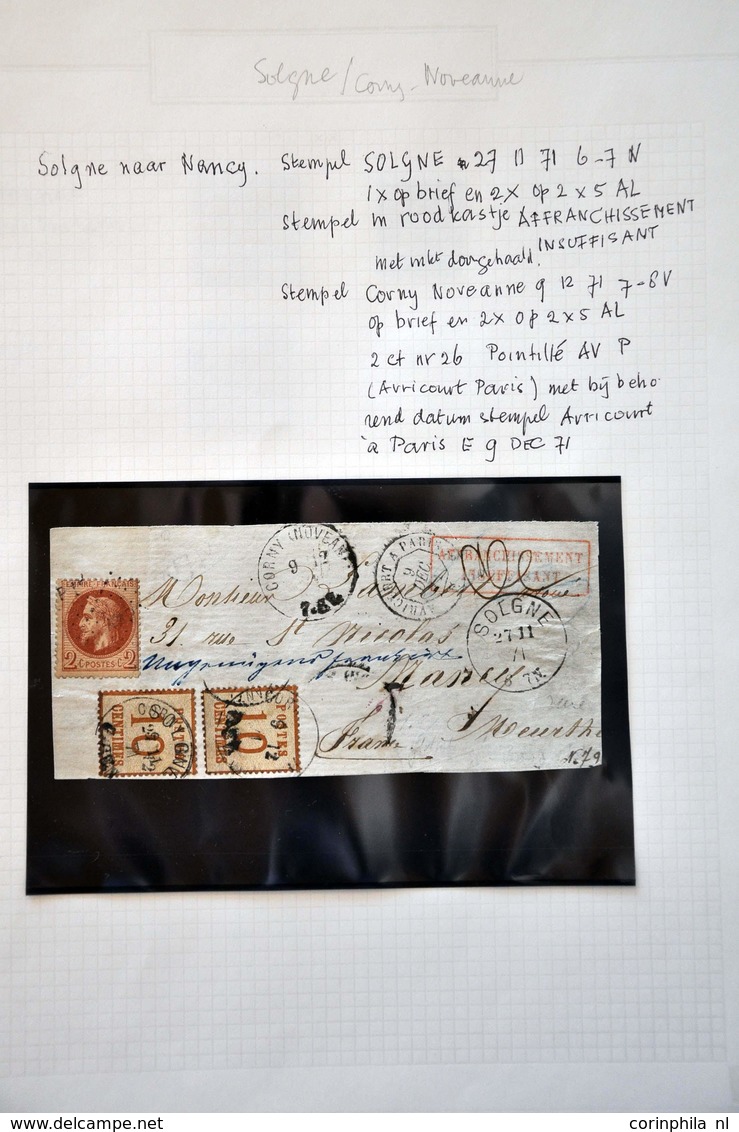 Solgne / Corny - Noveanne
Solgne naar Nancy. Stempel SOLGNE 27 11 71 6-7 N
1x op brief en 2x op 2 x 5 AL
Stempel in rood kastje AFFRANCHISSEMENT
INSUFFISANT
met inkt doorgehaald.
Stempel Corny Noveanne 9 12 71 7-8V
op brief en 2x op 2 x 5 AL
2 ct nr 26 Pointillé AV P
(Avricourt Paris) met bij beho
rend datum stempel Avricourt
à Paris E 9 DEC 71
CORNY (NOVEAN
9 12
7-8V.
AVRICOURT A PARIS
9
DEC
AFFRANCHISSEMENT
INSUFFISANT
EMPIRE FRANÇAIS
2 C POSTES C 2
Monsieur
SOLGNE
27 11
71
7N.
31, rue St Nicolas
Ungenügend frankirt
Nancy
POSTES
10
CENTIMES
POSTES
10
CENTIMES
9 12
T
France
Meurthe
No. 79
corinphila nl